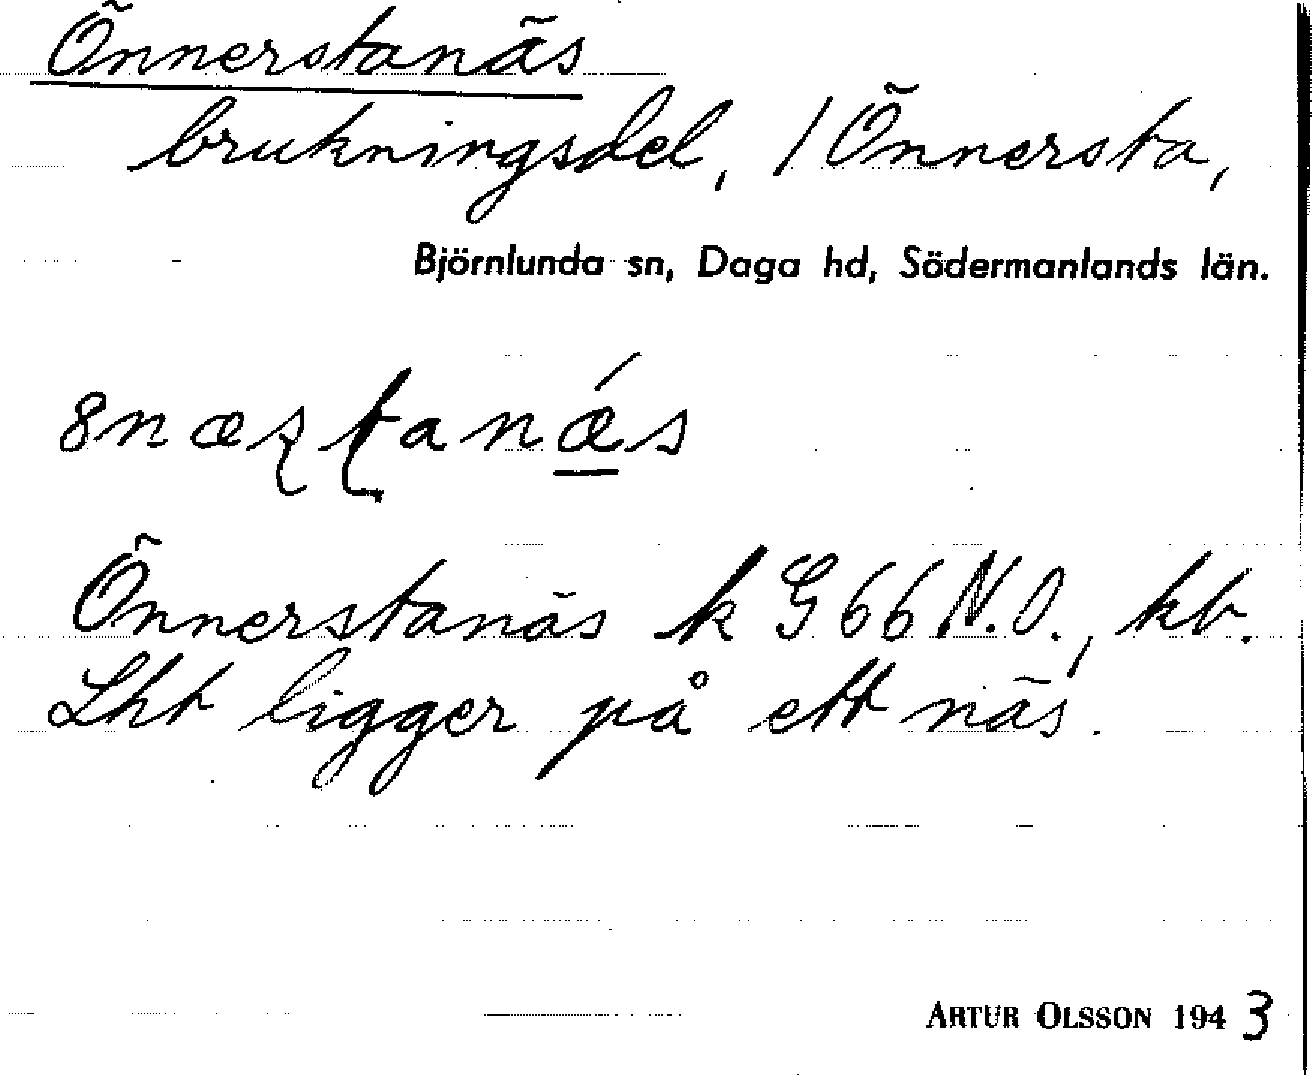 Önnerstanäs
brukningsdel, / Önnersta,
Björnlunda sn, Daga hd, Södermanlands län.
Önnerstanäs k G 66 N.O., kb.
Lht ligger på ett näs.
ARTUR OLSSON 1943